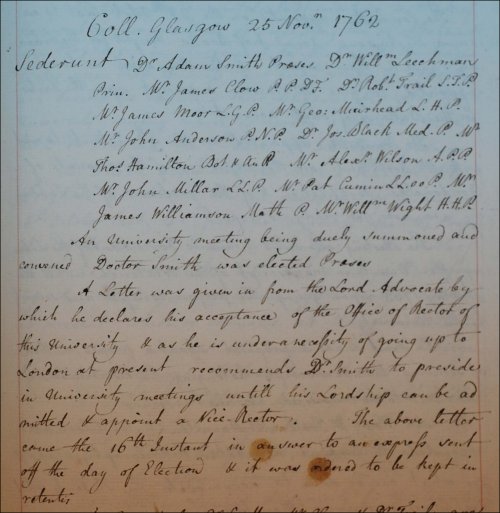 Coll. Glasgow 25 Nov.r 1762
Sederunt Dr Adam Smith Preses Dr Willm Leechman
Prin. Mr James Clow P.P. D.F. Dr Robt. Trail S.T.P.
Mr James Moor L.G.P. Mr Geo: Muirhead L.H.P.
Mr John Anderson P.N.P. Dr Jos. Black Med. P. Mr
Thos. Hamilton Bot & An P. Mr Alexr. Wilson A.P.P.
Mr John Millar L.L.P. Mr Pat Cumin LL.oo P. Mr
James Williamson Math P. Mr Willm Wight H.H.P.
An University meeting being duely summoned and
convened Doctor Smith was elected Preses
A Letter was given in from the Lord Advocate by
which he declares his acceptance of the Office of Rector of
this University & as he is under a necessity of going up to
London at present recommends Dr. Smith to preside
in University meetings untill his Lordship can be ad
mitted & appoint a Vice-Rector. The above letter
came the 16th Instant in answer to an express sent
off the day of Election & it was ordered to be kept in
retentis